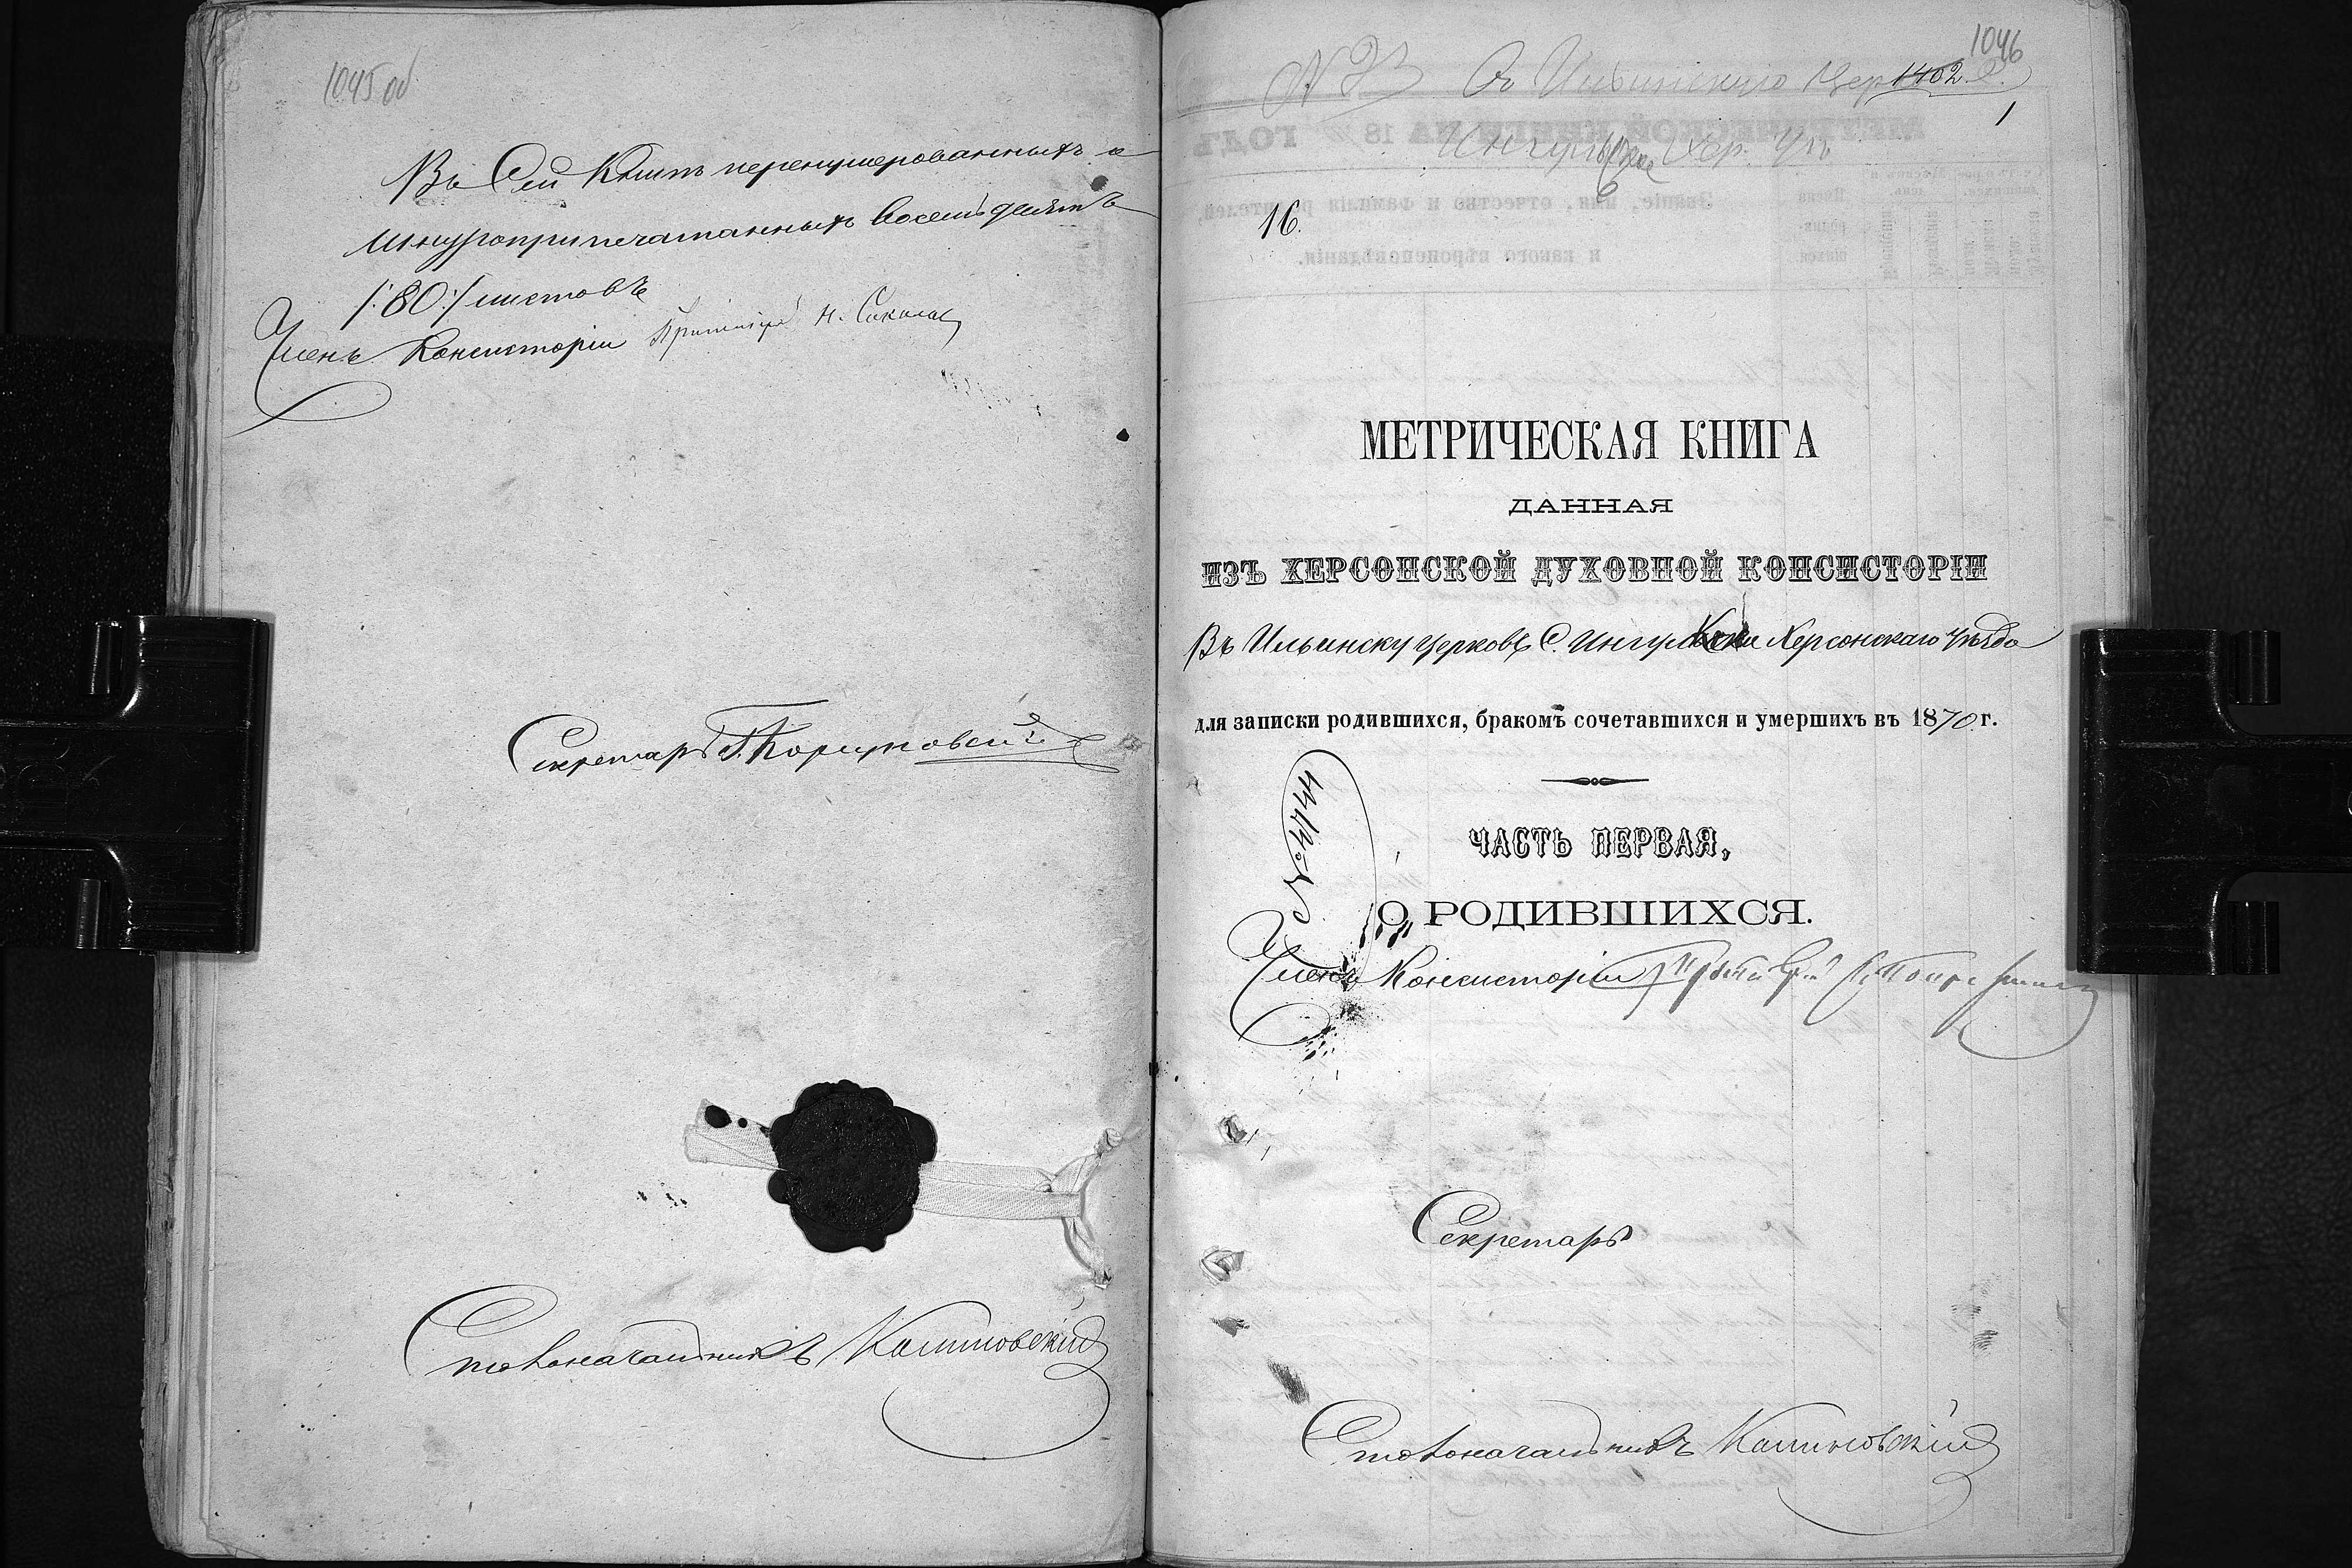 1045 об
Въ Сей Книгѣ перенумерованныхъ и
шнуроприпечатанныхъ восемьдесятъ
/:80:/ листовъ
Членъ Консисторіи Протоіерей Н. Соколов
Секретарь
Столоначальникъ Калиновскій
1046
1402.
1
Ильинской Цер
Хер. Уѣ
16.
МЕТРИЧЕСКАЯ КНИГА
ДАННАЯ
ИЗЪ ХЕРСОНСКОЙ ДУХОВНОЙ КОНСИСТОРІИ
Въ Ильинску церковь С. Херсонскаго Уѣзда
для записки родившихся, бракомъ сочетавшихся и умершихъ въ 1870 г.
ЧАСТЬ ПЕРВАЯ,
О РОДИВШИХСЯ.
Членъ Консисторіи Протоіерей
Секретарь
Столоначальникъ Калиновскій